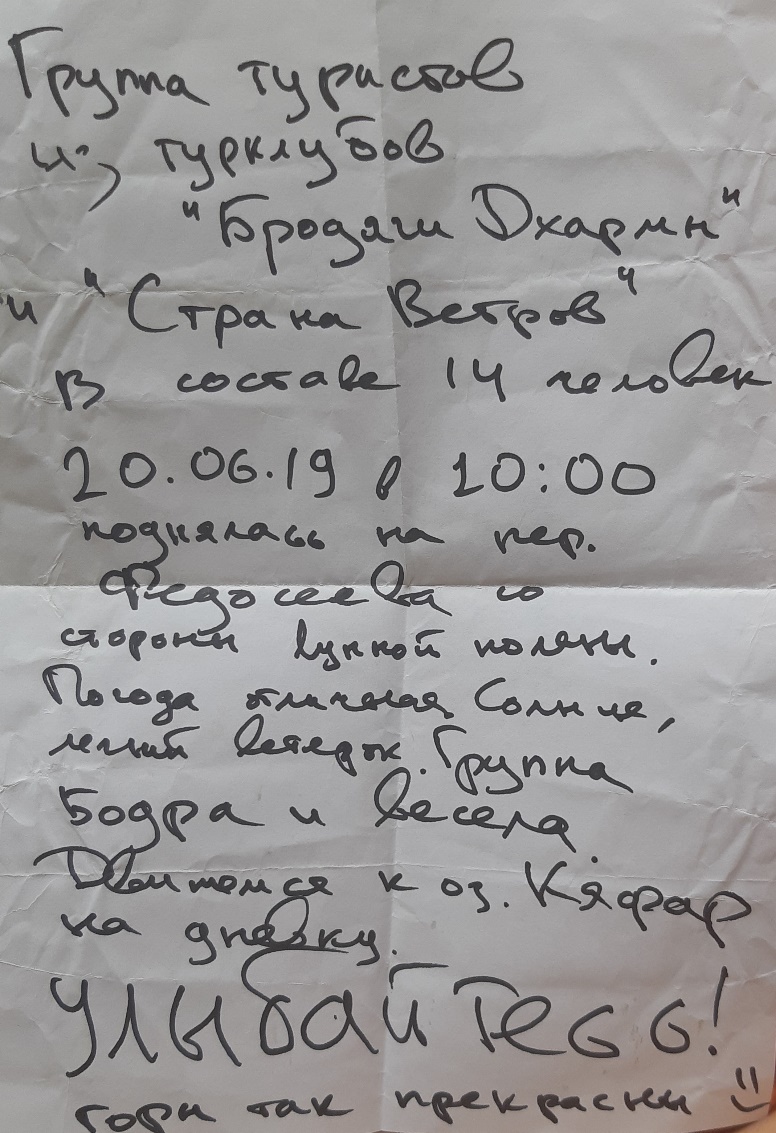 Группа туристов
из турклубов
"Бродяги Дхармы"
и "Страна Ветров"
в составе 14 человек
20.06.19 в 10:00
поднялась на пер.
Федосеева со
стороны Лунной поляны.
Погода отличная. Солнце,
легкий ветерок. Группа
бодра и весела.
Двигаемся к оз. Кяфар
на дневку.
Улыбайтесь!
горы так прекрасны